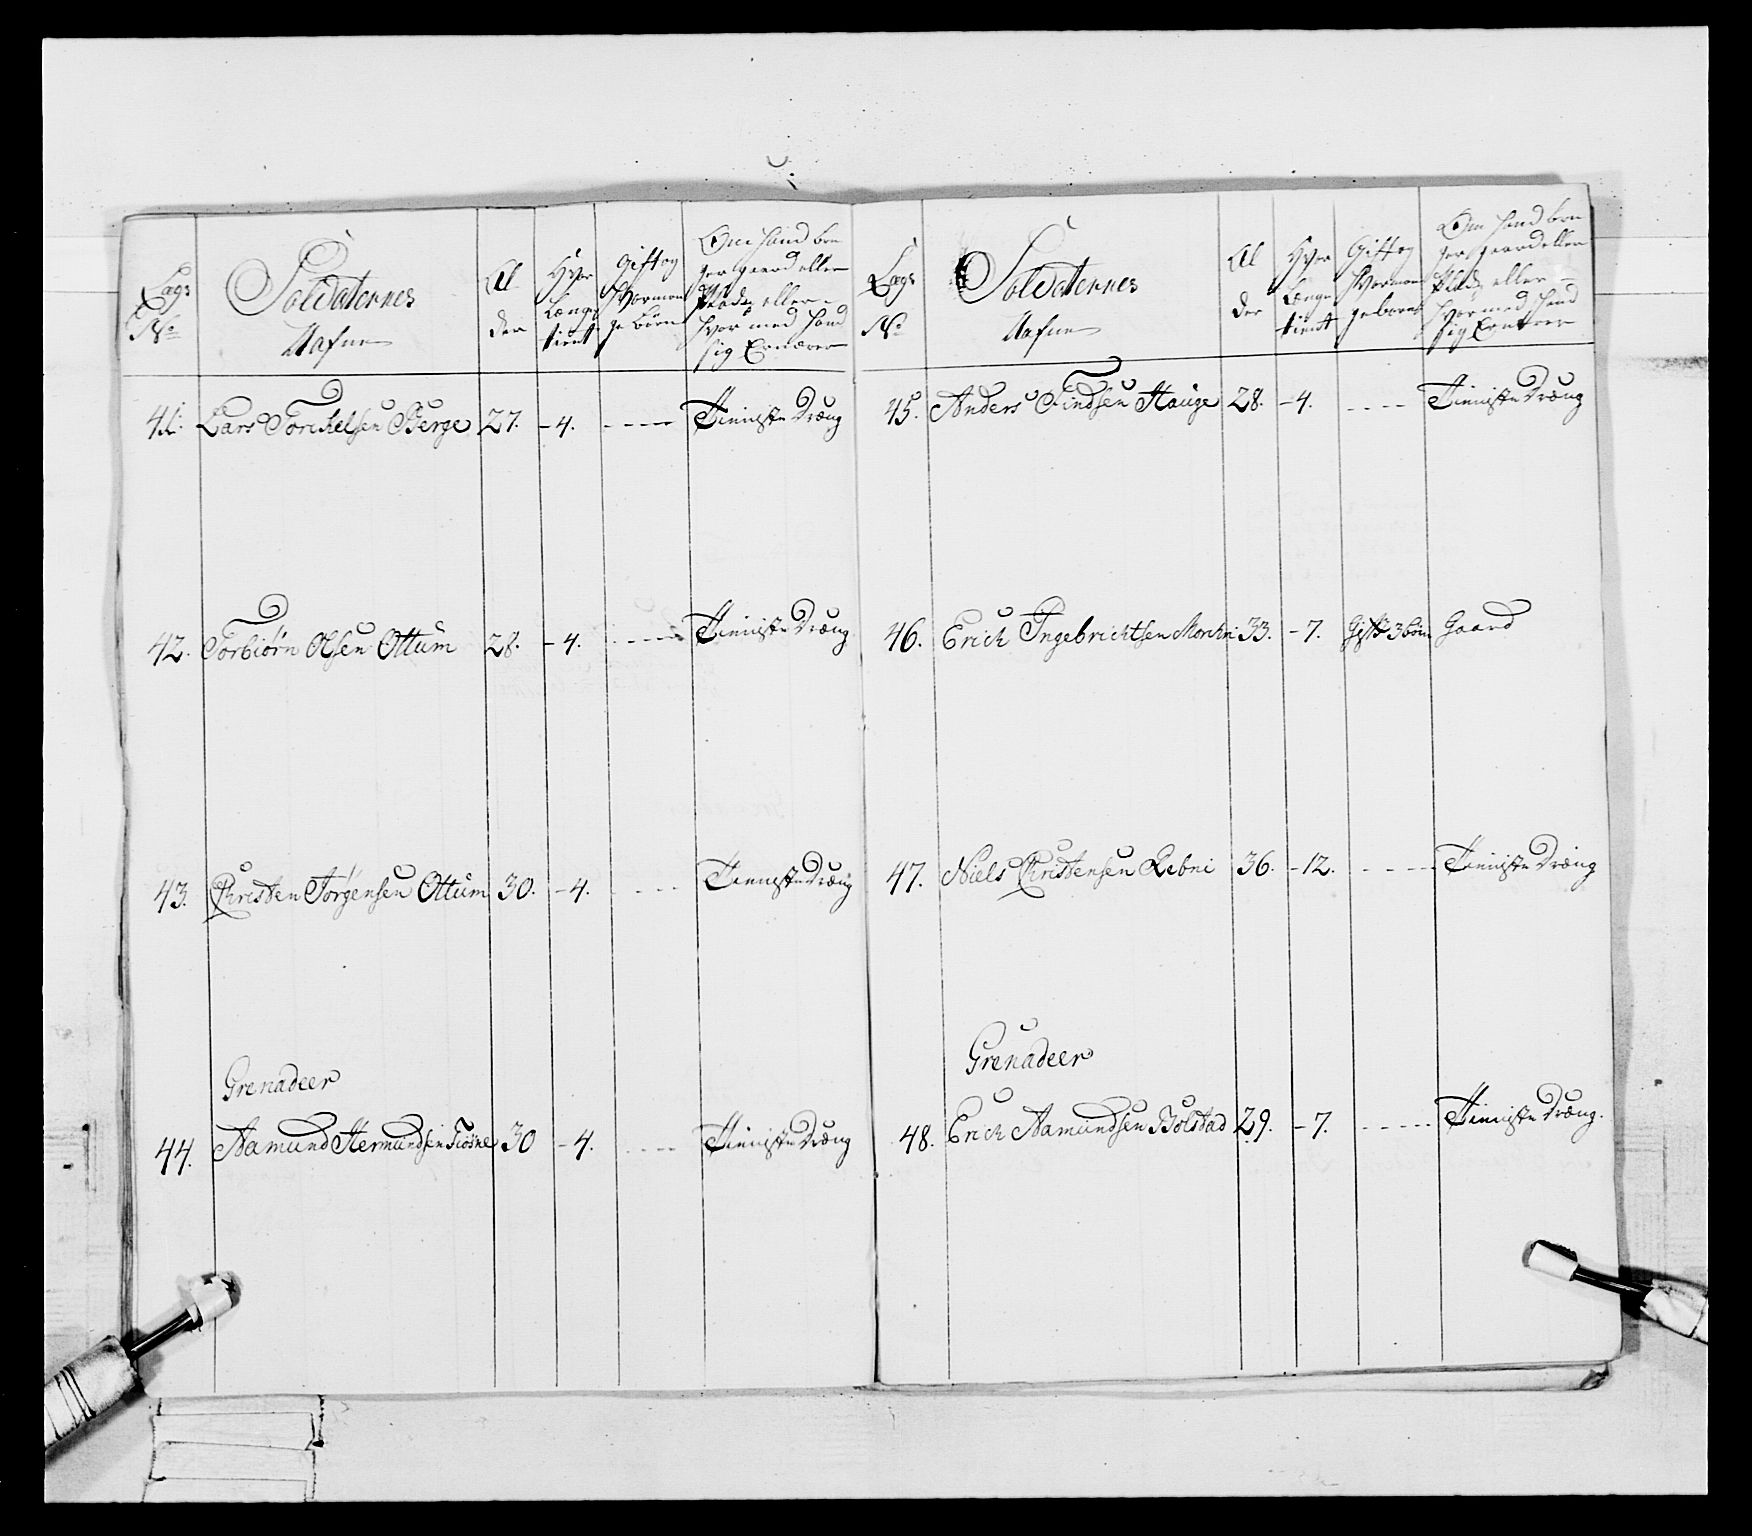 Lags
No
Soldaternes
Nafne
Al
der
Hvor
Længe
tient
Gift og
Hvorman
ge Børn
Om hand bru
ger gaard eller
Plads eller
hvor med hand
sig Ernærer
41. Lars Torchelsen Berge 27. - 4. ---- Tieniste Dræng
42. Torbiørn Olsen Ottum 28. - 4. ---- Tieniste Dræng
43. Christen Jørgensen Ottum 30. - 4. --- Tieniste Dræng
Grenadeer
44. Aamund Hermundsen Fiøsne 30 - 4. ---- Tieniste Dræng
Lags
No
Soldaternes
Nafne
Al
der
Hvor
Længe
tient
Gift og
Hvorman
ge børn
Om hand bru
ger gaard eller
Plads eller
hvor med hand
sig
45. Anders Findsen Hauge 28. - 4. ---- Tieniste Dræng
46. Erich Ingebrichtsen 33. - 7. Gift 3 børn Gaard
47. Niels Christensen Rebni 36. - 12. ---- Tieniste Dræng
Grenadeer
48. Erich Aamundsen Bolstad 29. - 7. ----- Tieniste Dræng.